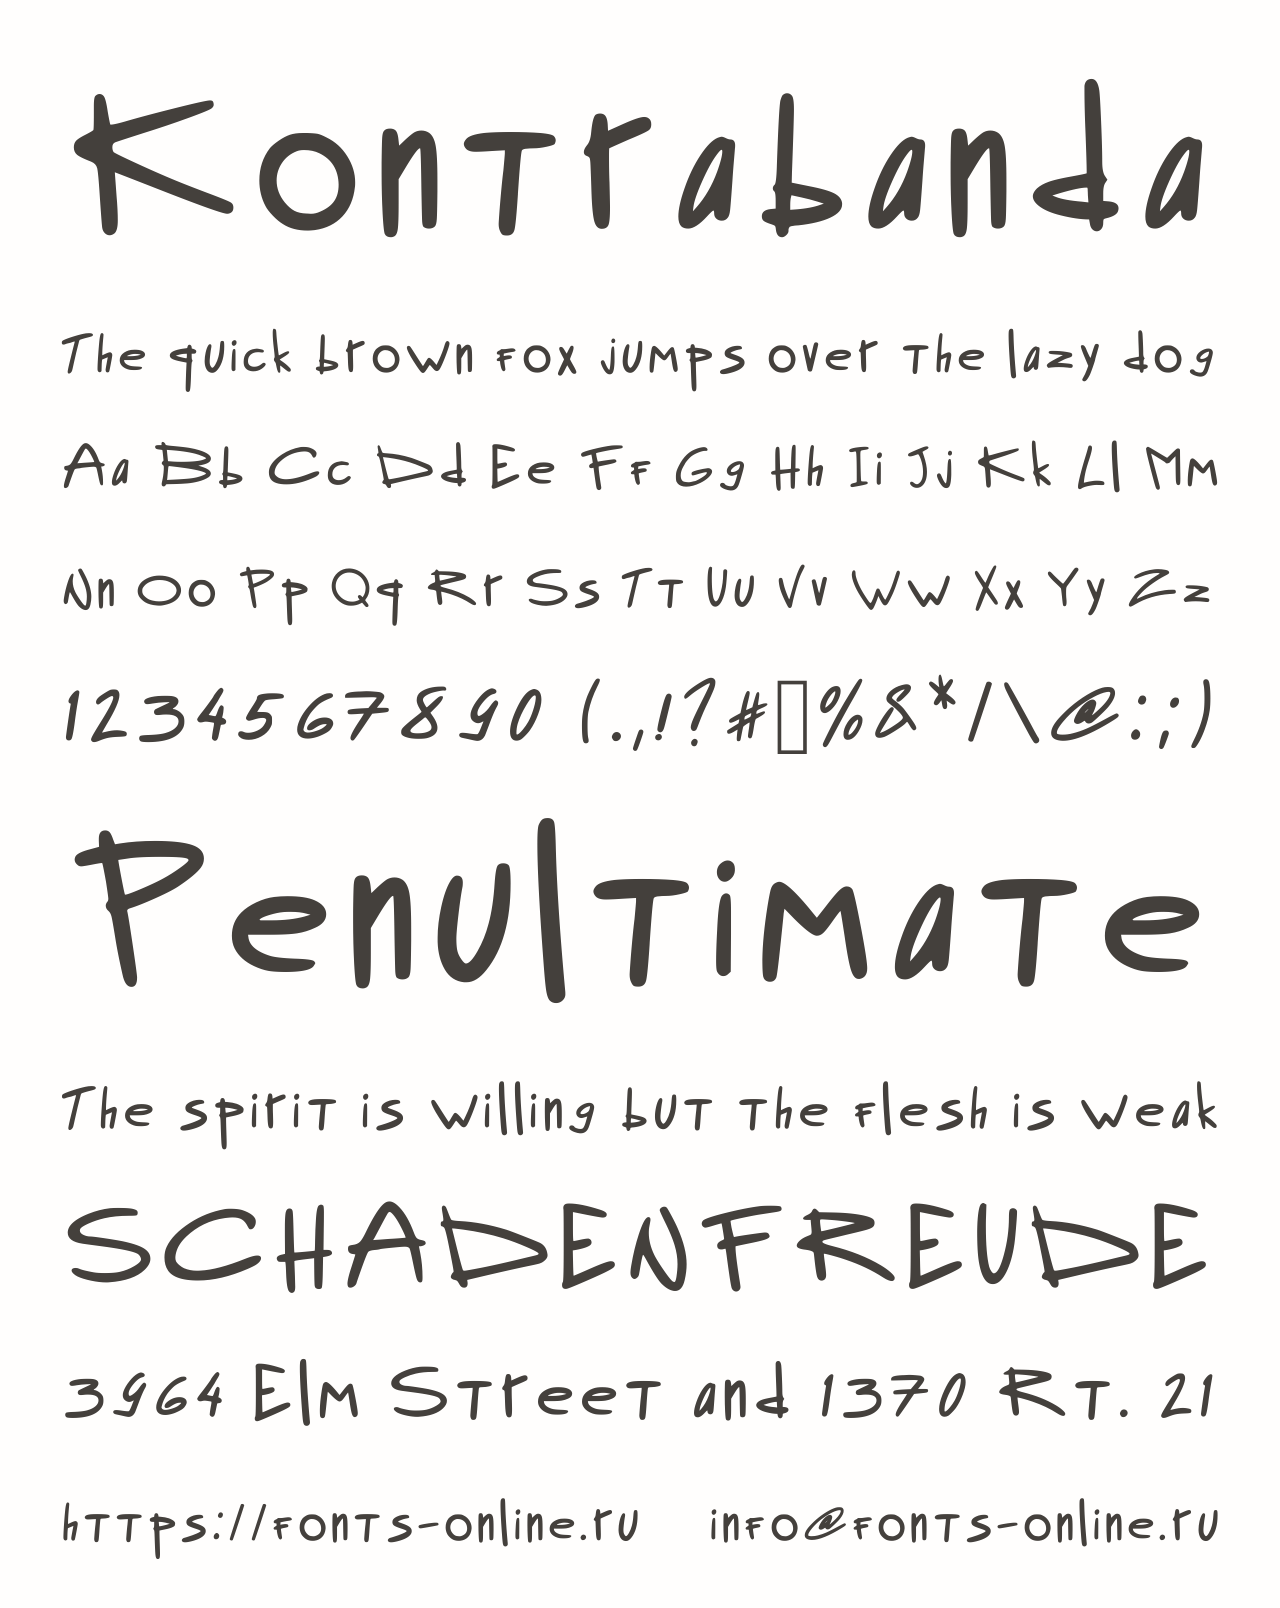 Kontrabanda
The quick brown fox jumps over the lazy dog
Aa Bb Cc Dd Ee Ff Gg Hh Ii Jj Kk Ll Mm
Nn Oo Pp Qq Rr Ss Tt Uu Vv Ww Xx Yy Zz
1234567890 (.,!?#▯%&*/\@:;)
Penultimate
The spirit is willing but the flesh is weak
SCHADENFREUDE
3964 Elm Street and 1370 Rt. 21
https://fonts-online.ru info@fonts-online.ru